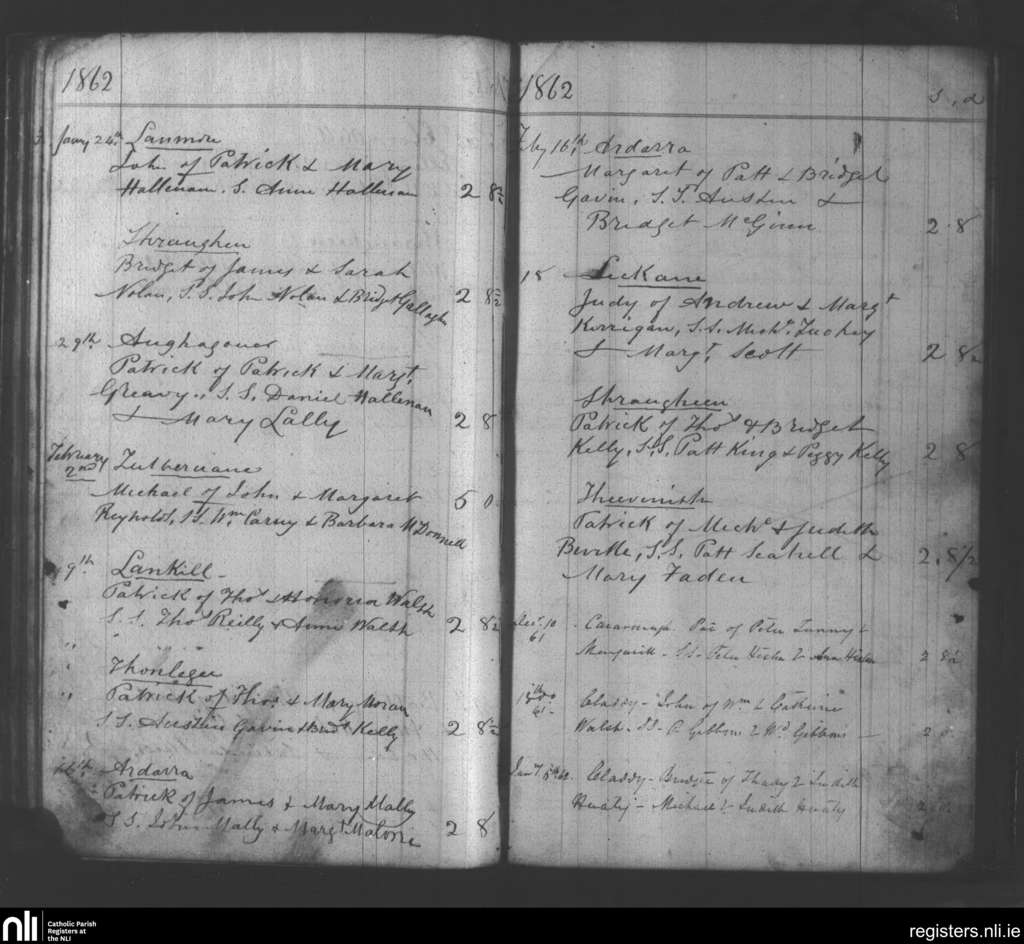 1862
Jany 24th. Lanmore
John of Patrick & Mary
Hallenan. S. Anne Hallenan 2 8½
Shraughen
Bridget of James & Sarah
Nolan, S.S. John Nolan & Bridget Gallagher 2 8½
29th. Aughagower
Patrick of Patrick & Margt.
Greavy., S.S. Daniel Hallenan
& Mary Lally 2 8
February
2nd
Michael of John & Margaret 5 0
Reynolds, S.S. Wm. Carny & Barbara McDonnell
9th. Lankill
Patrick of Thos & Honoria Walsh
S.S. Thos Reilly & Anne Walsh 2 8½
" "
" Thonlegee
" Patrick of Thos. & Mary Moran
S.S. Austin Gavin & Bridt Kelly 2 8½
16th. Ardarra
" Patrick of James & Mary Mally
S S. John Mally & Margt Malone 2 8
1862 s. d
Feby 16th. Ardarra
Margaret of Patt & Bridget
Gavin, S.S. Austin &
Bridget McGinn 2.8
18 Leckane
Judy of Andrew & Margt
Kerrigan, S.S. Michl.
& Margt. Scott 2 8½
Shraugheen
Patrick of Thos & Bridget
Kelly, S.S. Patt King & Peggy Kelly 2 8
Theevinish
Patrick of Michl & Judith
S.S. Patt & 2.8½
Mary Faden
Decr. 10
61 Pat of Peter &
S.S. Peter & 2 8½
61 Claddy - John of Wm & Catherine
Walsh - SS - P. Gibbons & Wd. Gibbons 2
Claddy - Bridget of & Judith
- Michael & Judith 2
nli
Catholic Parish
Registers at
the NLI
registers.nli.ie